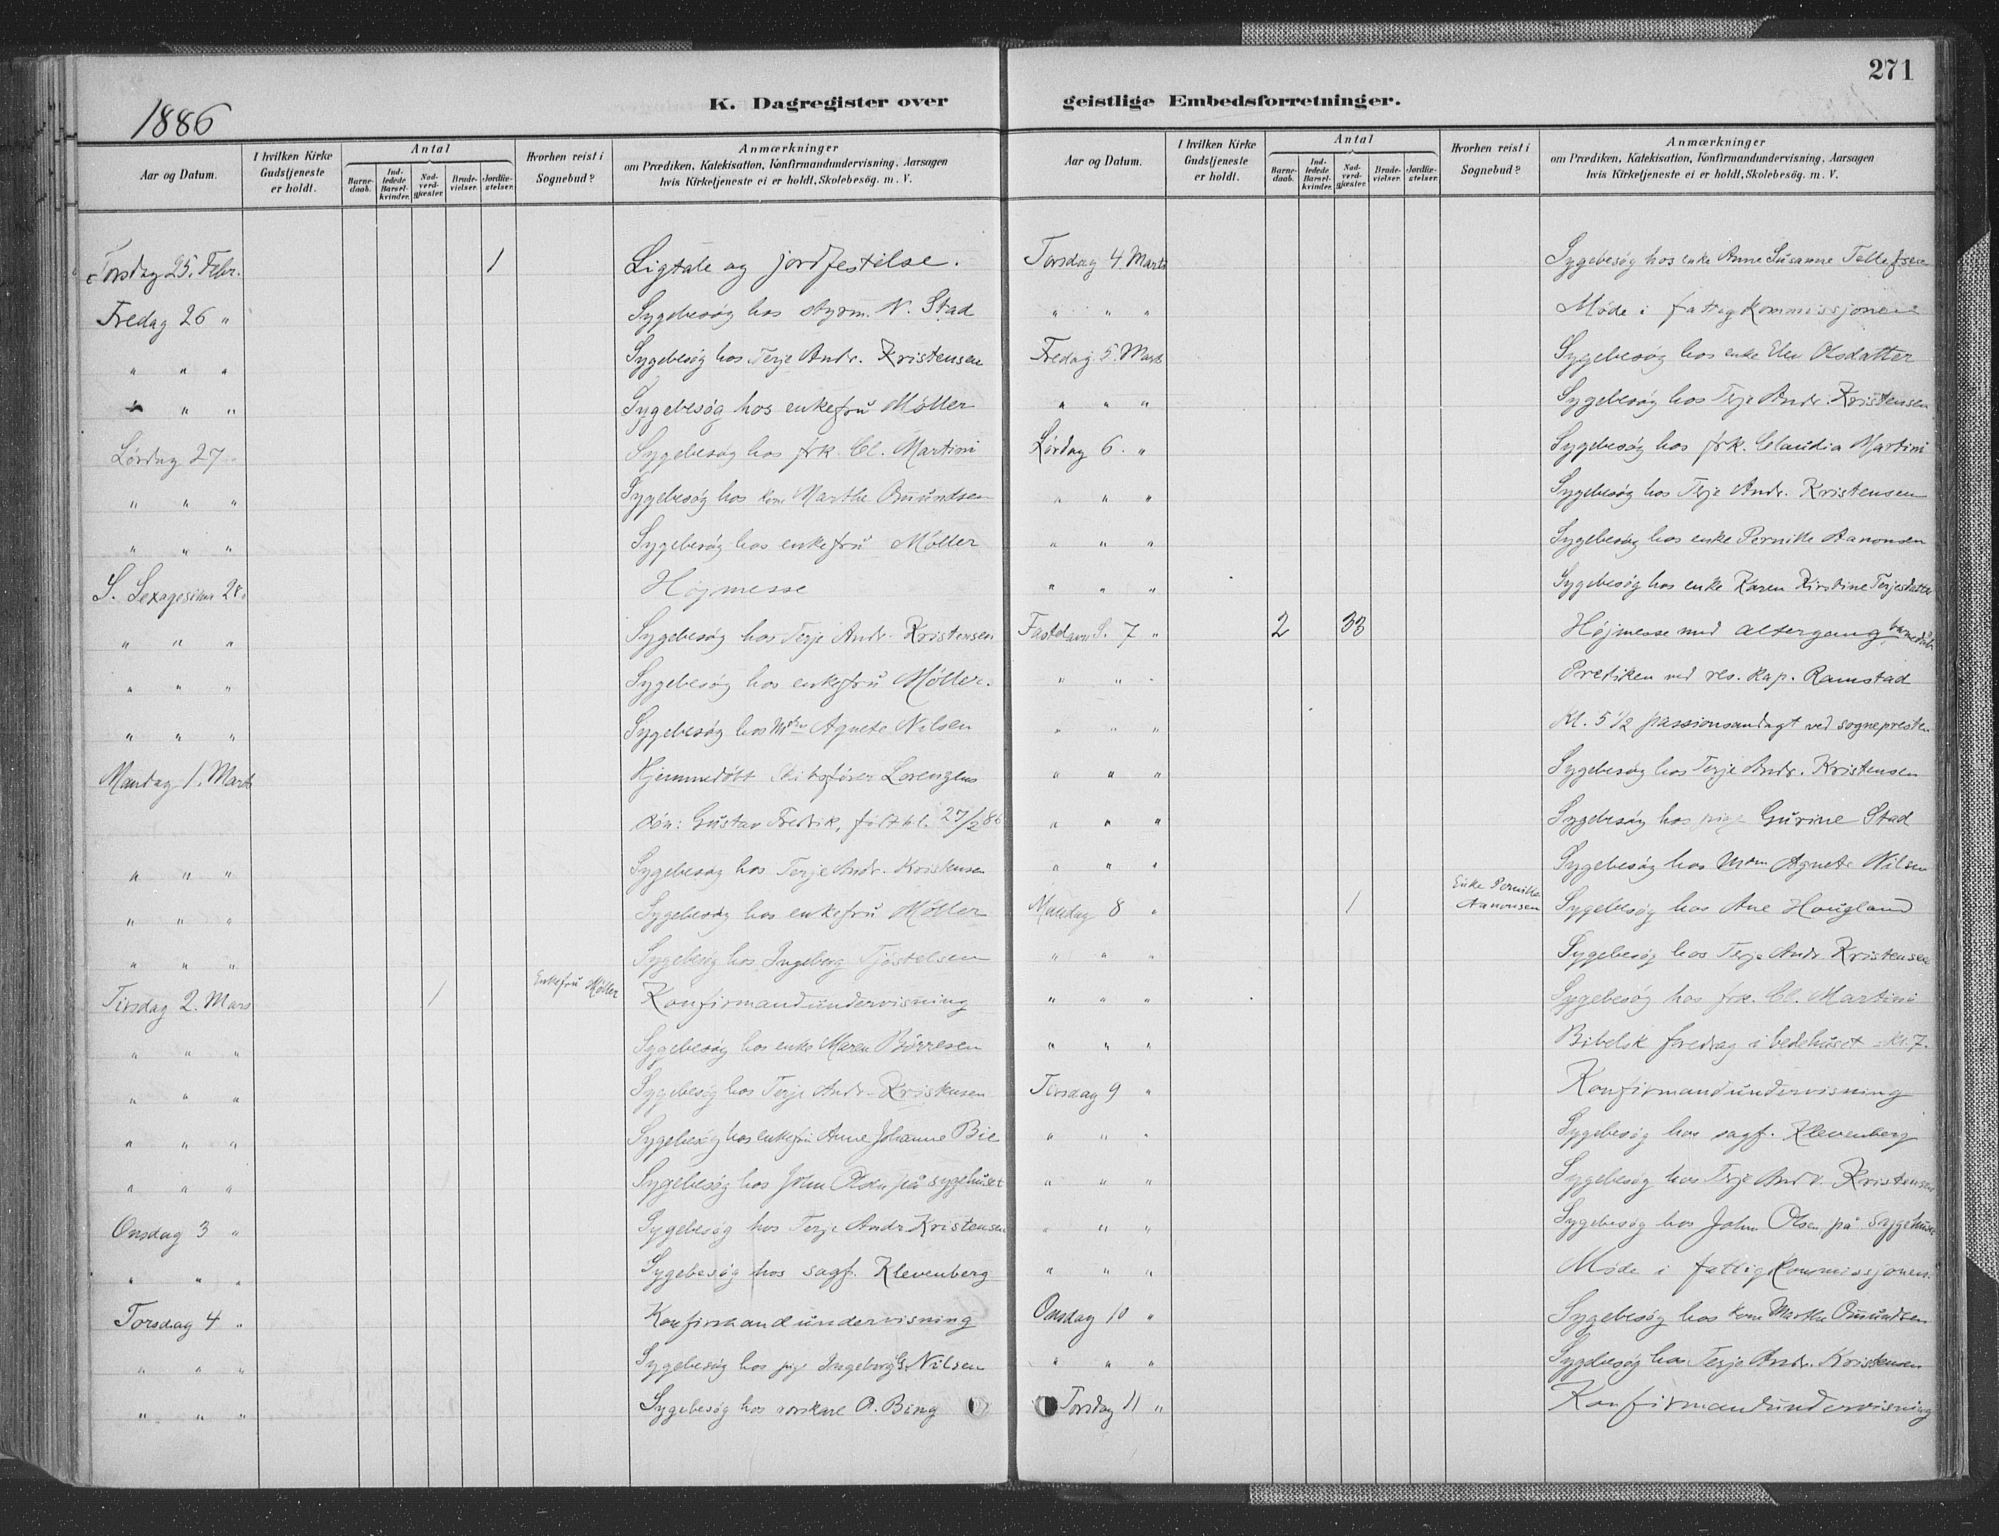 271
1886
K. Dagregister over geistlige Embedsforretninger.
Aar og Datum.
I hvilken Kirke Gudstjeneste er holdt.
Antal
Barnedaab.
Indledede Barselkvinder.
Nadverdgjæster.
Brudevielser.
Jordfæstelser.
Hvorhen reist i Sognebud?
Anmærkninger
om Prædiken, Katekisation, Konfirmandundervisning, Aarsagen
hvis Kirketjeneste ei er holdt, Skolebesøg. m. V.
Torsdag 25. Febr. 1 Ligtale og jordfestelse.
Fredag 26 " Sygebesøg hos styrm. N. Stad
" " " Sygebesøg hos Terje Andr. Kristensen
" " " Sygebesøg hos enkefru Møller
Lördag 27 Sygebesøg hos frk. Cl. Martini
" " " Sygebesøg hos kone Marthe Omundsen
" " " Sygebesøg hos enkefru Møller
S. Sexagesima 28. Højmesse
" " " Sygebesøg hos Terje Andr. Kristensen
" " " Sygebesøg hos enkefru Møller.
" " " Sygebesøg hos Agnete Nilsen
Mandag 1. Marts Hjemmedøbt Lorenzens
søn: Gustav Fredrik, født 27/2 86
" " " Sygebesøg hos Terje Andr. Kristensen
" " " Sygebesøg hos enkefru Møller
" " " Sygebesøg hos Ingeborg Tjöstelsen
Tirsdag 2. Mars 1 Enkefru Møller Konfirmandundervisning
" " " Sygebesøg hos enke Maren Börresen
" " " Sygebesøg hos Terje Andr. Kristensen
" " " Sygebesøg hos enkefru Anne Johanne Bie
" " " Sygebesøg hos John Olsen på sygehuset
Onsdag 3 " Sygebesøg hos Terje Andr. Kristensen
" " " Sygebesøg hos sagf. Klevenberg
Torsdag 4 " Konfirmandundervisning
" " " Sygebesøg hos pige Ingeborg G. Nilsen
" " " Sygebesøg hos O. Bing
Aar og Datum.
I hvilken Kirke Gudstjeneste er holdt.
Antal
Barnedaab.
Indledede Barselkvinder.
Nadverdgjæster.
Brudevielser.
Jordfæstelser.
Hvorhen reist i Sognebud?
Anmærkninger
om Prædiken, Katekisation, Konfirmandundervisning, Aarsagen
hvis Kirketjeneste ei er holdt, Skolebesøg. m. V.
Torsdag 4. Marts Sygebesøg hos enke Anne Susanne Tellefsen
" " " Møde i fattigkommissjonen
Fredag 5. Marts Sygebesøg hos enke Elen Olsdatter
" " " Sygebesøg hos Terje Andr. Kristensen
Lørdag 6. " Sygebesøg hos frk. Claudia Martini
" " " Sygebesøg hos Terje Andr. Kristensen
" " " Sygebesøg hos enke Pernille Aanonsen
" " " Sygebesøg hos enke Karen Kirstine Terjesdatter
Fastelavns S. 7 " 2 33 Højmesse med altergang barnedåb
" " " Prediken ved res. kap. Ramstad
" " " Kl. 5 1/2 passionsandagt ved sognepresten
" " " Sygebesøg hos Terje Andr. Kristensen
" " " Sygebesøg hos pige Gurine Stad
" " " Sygebesøg hos Agnete Nilsen
Mandag 8 " 1 Enke Pernille Aanonsen Sygebesøg hos Ane Hougland
" " " Sygebesøg hos Terje Andr. Kristensen
" " " Sygebesøg hos frk. Cl. Martini
" " " Bibelsk foredrag i bedehuset kl. 7.
Tirsdag 9 " Konfirmandundervisning
" " " Sygebesøg hos sagf. Klevenberg
" " " Sygebesøg hos Terje Andr. Kristensen
" " " Sygebesøg hos John Olsen på sygehuset
" " " Møde i fattigkommissjonen.
Onsdag 10 " Sygebesøg hos kone Marthe Omundsen
" " " Sygebesøg hos Terje Andr. Kristensen
Torsdag 11 " Konfirmandundervisning